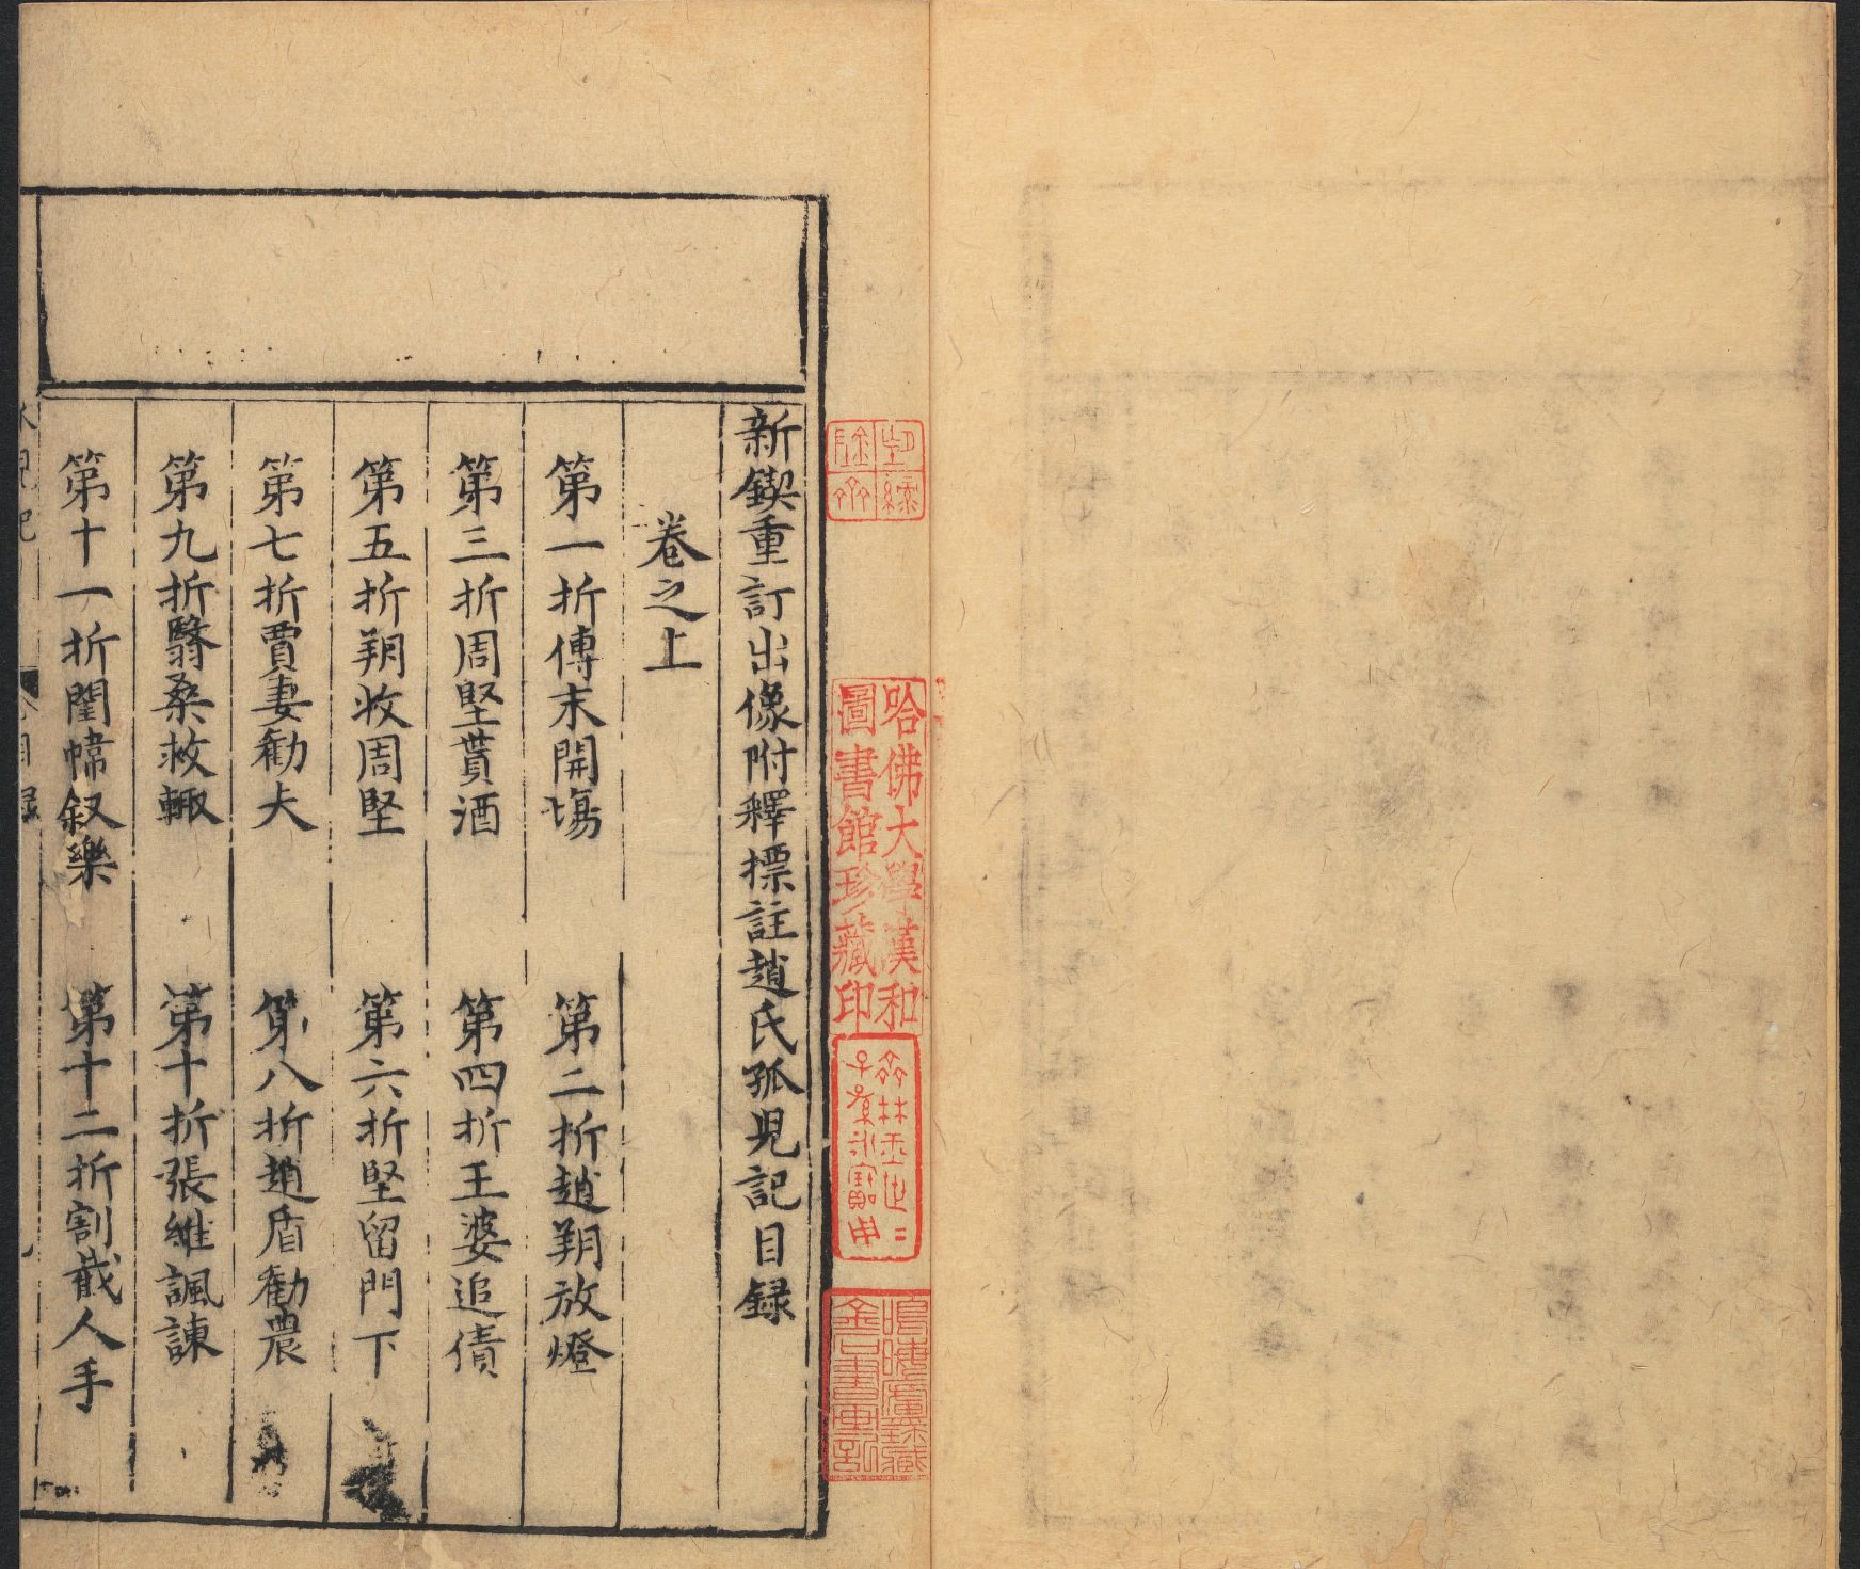 新鍥重訂出像附釋摽註趙氏孤児記目録
卷之上
第一折傳末開塲
第二折趙朔放燈
第三折周堅貰酒
第四折王婆追債
第五折朔收周堅
第六折堅留門下
第七折賈妻勸夫
第八折趙盾勸農
第九折翳桑救輙
第十折張維諷諫
第十一折閨幃叙樂
第十二折割截人手
哈佛大學漢和
圖書館珍藏印